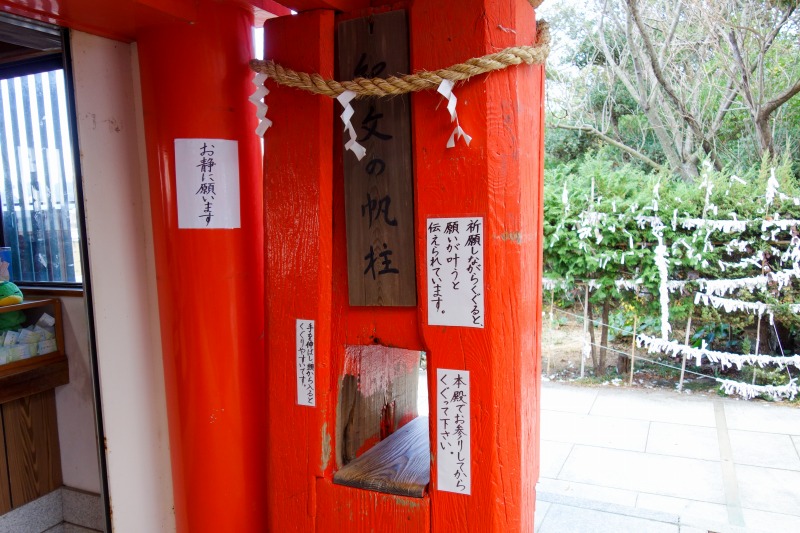 知文の帆柱
お静に願います
祈願しながらくぐると、
願いが叶うと
伝えられています。
手を伸ばし頭から入ると
くぐりやすいです。
本殿でお参りしてから
くぐって下さい。